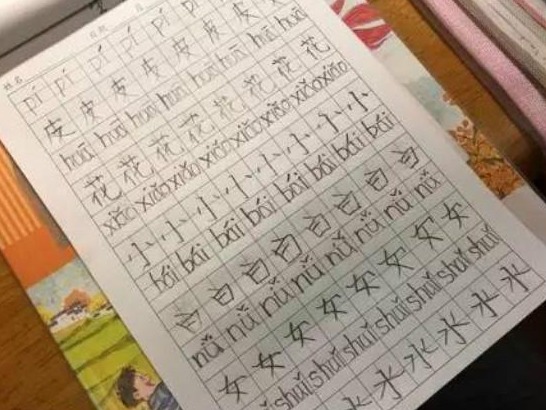 姓名 日期
pí pí pí pí pí pí
皮 皮 皮 皮 皮 皮 皮
huā huā huā huā huā huā huā huā
花 花 花 花 花 花 花 花
xiǎo xiǎo xiǎo xiǎo xiǎo xiǎo xiǎo xiǎo
小 小 小 小 小 小 小 小
bái bái bái bái bái bái bái bái
白 白 白 白 白 白 白 白
nǚ nǚ nǚ nǚ nǚ nǚ nǚ nǚ
女 女 女 女 女 女 女 女
shuǐ shuǐ shuǐ shuǐ shuǐ shuǐ shuǐ
水 水 水 水 水 水